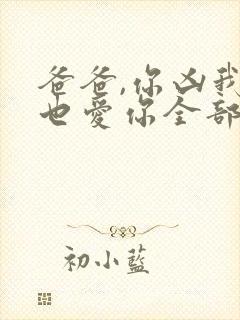 爸爸,你凶我
也爱你全部
初小藍